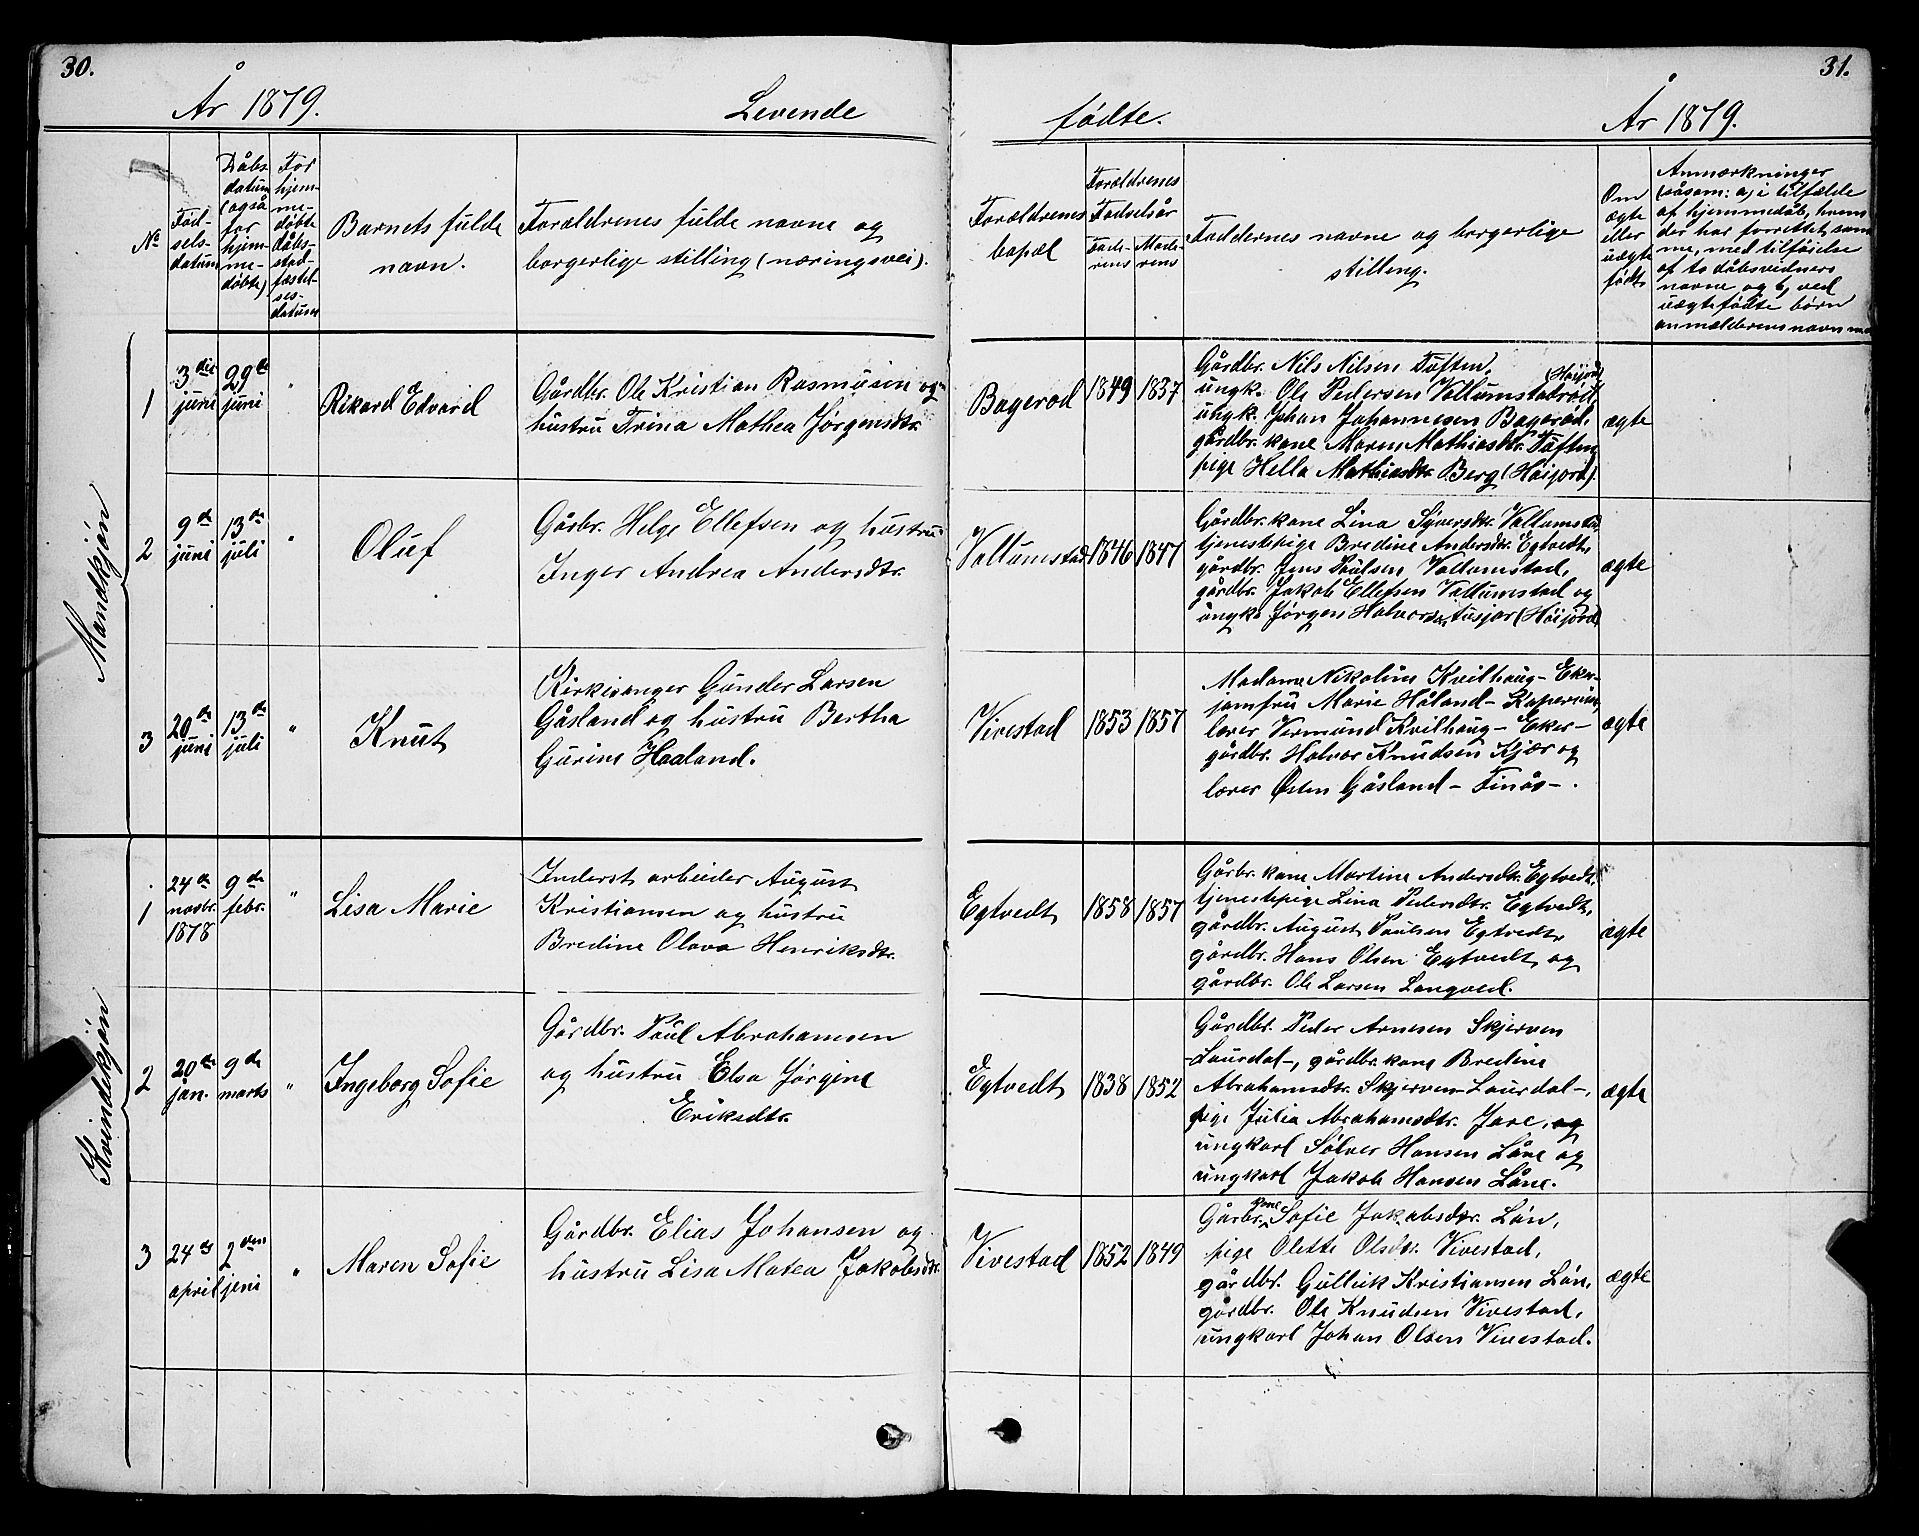 30.
År 1879.
Levende
№
Fød-
sels-
datum
Dåbs
datum
(også
for
hjem-
me-
døbte)
For
hjem-
me-
døbte
dåbs-
stad-
fæstel-
ses-
datum
Barnets fulde
navn.
Forældrenes fulde navne og
borgerlige stilling (næringsvei).
Mandkjøn
1
3die
juni
29de
juni
"
Rikard Edvard
Gårdbr. Ole Kristian Rasmusen og
hustru Trina Mathea Jørgensdtr.
2
9de
juni
13de
juli
"
Oluf
Gårbr. Helge Ellefsen og hustru
Inger Andrea Andersdtr.
3
20de
juni
13de
juli
"
Knut
Kirkesanger Gunder Larsen
Gåsland og hustru Bertha
Gurine Haaland.
Kvindekjøn
1
24de
novbr.
1878
9de
febr.
"
Lisa Marie
Inderst arbeider August
Kristiansen og hustru
Bredine Olava Henriksdtr.
2
20de
jan.
9de
marts
"
Ingeborg Sofie
Gårdbr. Paul Abrahamsen
og hustru Elsa Jørgine
Eriksdtr.
3
24de
april
2den
jeni
"
Maren Sofie
Gårdbr. Elias Johansen og
hustru Lisa Matea Jakobsdtr.
31.
fødte.
År 1879.
Forældrenes
bopæl
Forældrenes
Fødselsår
Fade-
rens
Mode-
rens
Faddernes navne og borgerlige
stilling.
Om
ægte
eller
uægte
født
Anmærkninger
(såsom: a, i tilfælde
af hjemmedåb, hvem
der har forrettet sam-
me, med tilføielse
af to dåbsvidners
navne, og b, ved
uægtefødte børn
anmælderens navn m.
Bagerød
1849
1837
Gårdbr. Nils Nilsen Tuften,
ungk. Ole Pedersen Vallumstadrød (Høijord)
ungk. Johan Johannesen Bagerød,
gårdbr. kone Maren Mathiasdtr. Tuften
pige Hella Mathiasdtr. Berg (Høijord).
ægte
Vallumstad
1846
1847
Gårdbr. kone Lina Syversdtr. Vallumstad
tjenestepige Bredine Andersdtr. Egtvedt,
gårdbr. Jens Paulsen Vallumstad,
gårdbr. Jakob Ellefsen Vallumstad og
ungk. Jørgen Halvorsen, (Høijord)
ægte
Vivestad
1853
1857
Madame Nikoline Kvilhaug – Eker
jomfru Marie Håland –
lærer Vermund Kvilhaug – Eker –
gårdbr. Halvor Knudsen Kjær og
lærer Østen Gåsland – Finås – .
ægte
Egtvedt
1858
1857
Gårbr. kone Martine Andersdtr. Egtvedt,
tjenestepige Lina Pedersdtr. Egtvedt,
gårdbr. August Paulsen Egtvedt,
gårdbr. Hans Olsen Egtvedt og
gårdbr. Ole Larsen Langved.
ægte
Egtvedt
1838
1852
Gårdbr. Peder Arnesen Skjerven
– Laurdal –, gårdbr. kone Bredine
Abrahamsdtr. Skjerven – Laurdal –,
pige Julia Abrahamsdtr. Jare, og
ungkarl Sølver Hansen Låne og
ungkarl Jakob Hansen Låne.
ægte
Vivestad
1852
1849
Gårbr. kone Sofie Jakobsdtr. Løn,
pige Olette Olsdtr. Vivestad,
gårdbr. Gullick Kristiansen Løn,
gårdbr. Ole Knudsen Vivestad,
ungkarl Johan Olsen Vivestad.
ægte